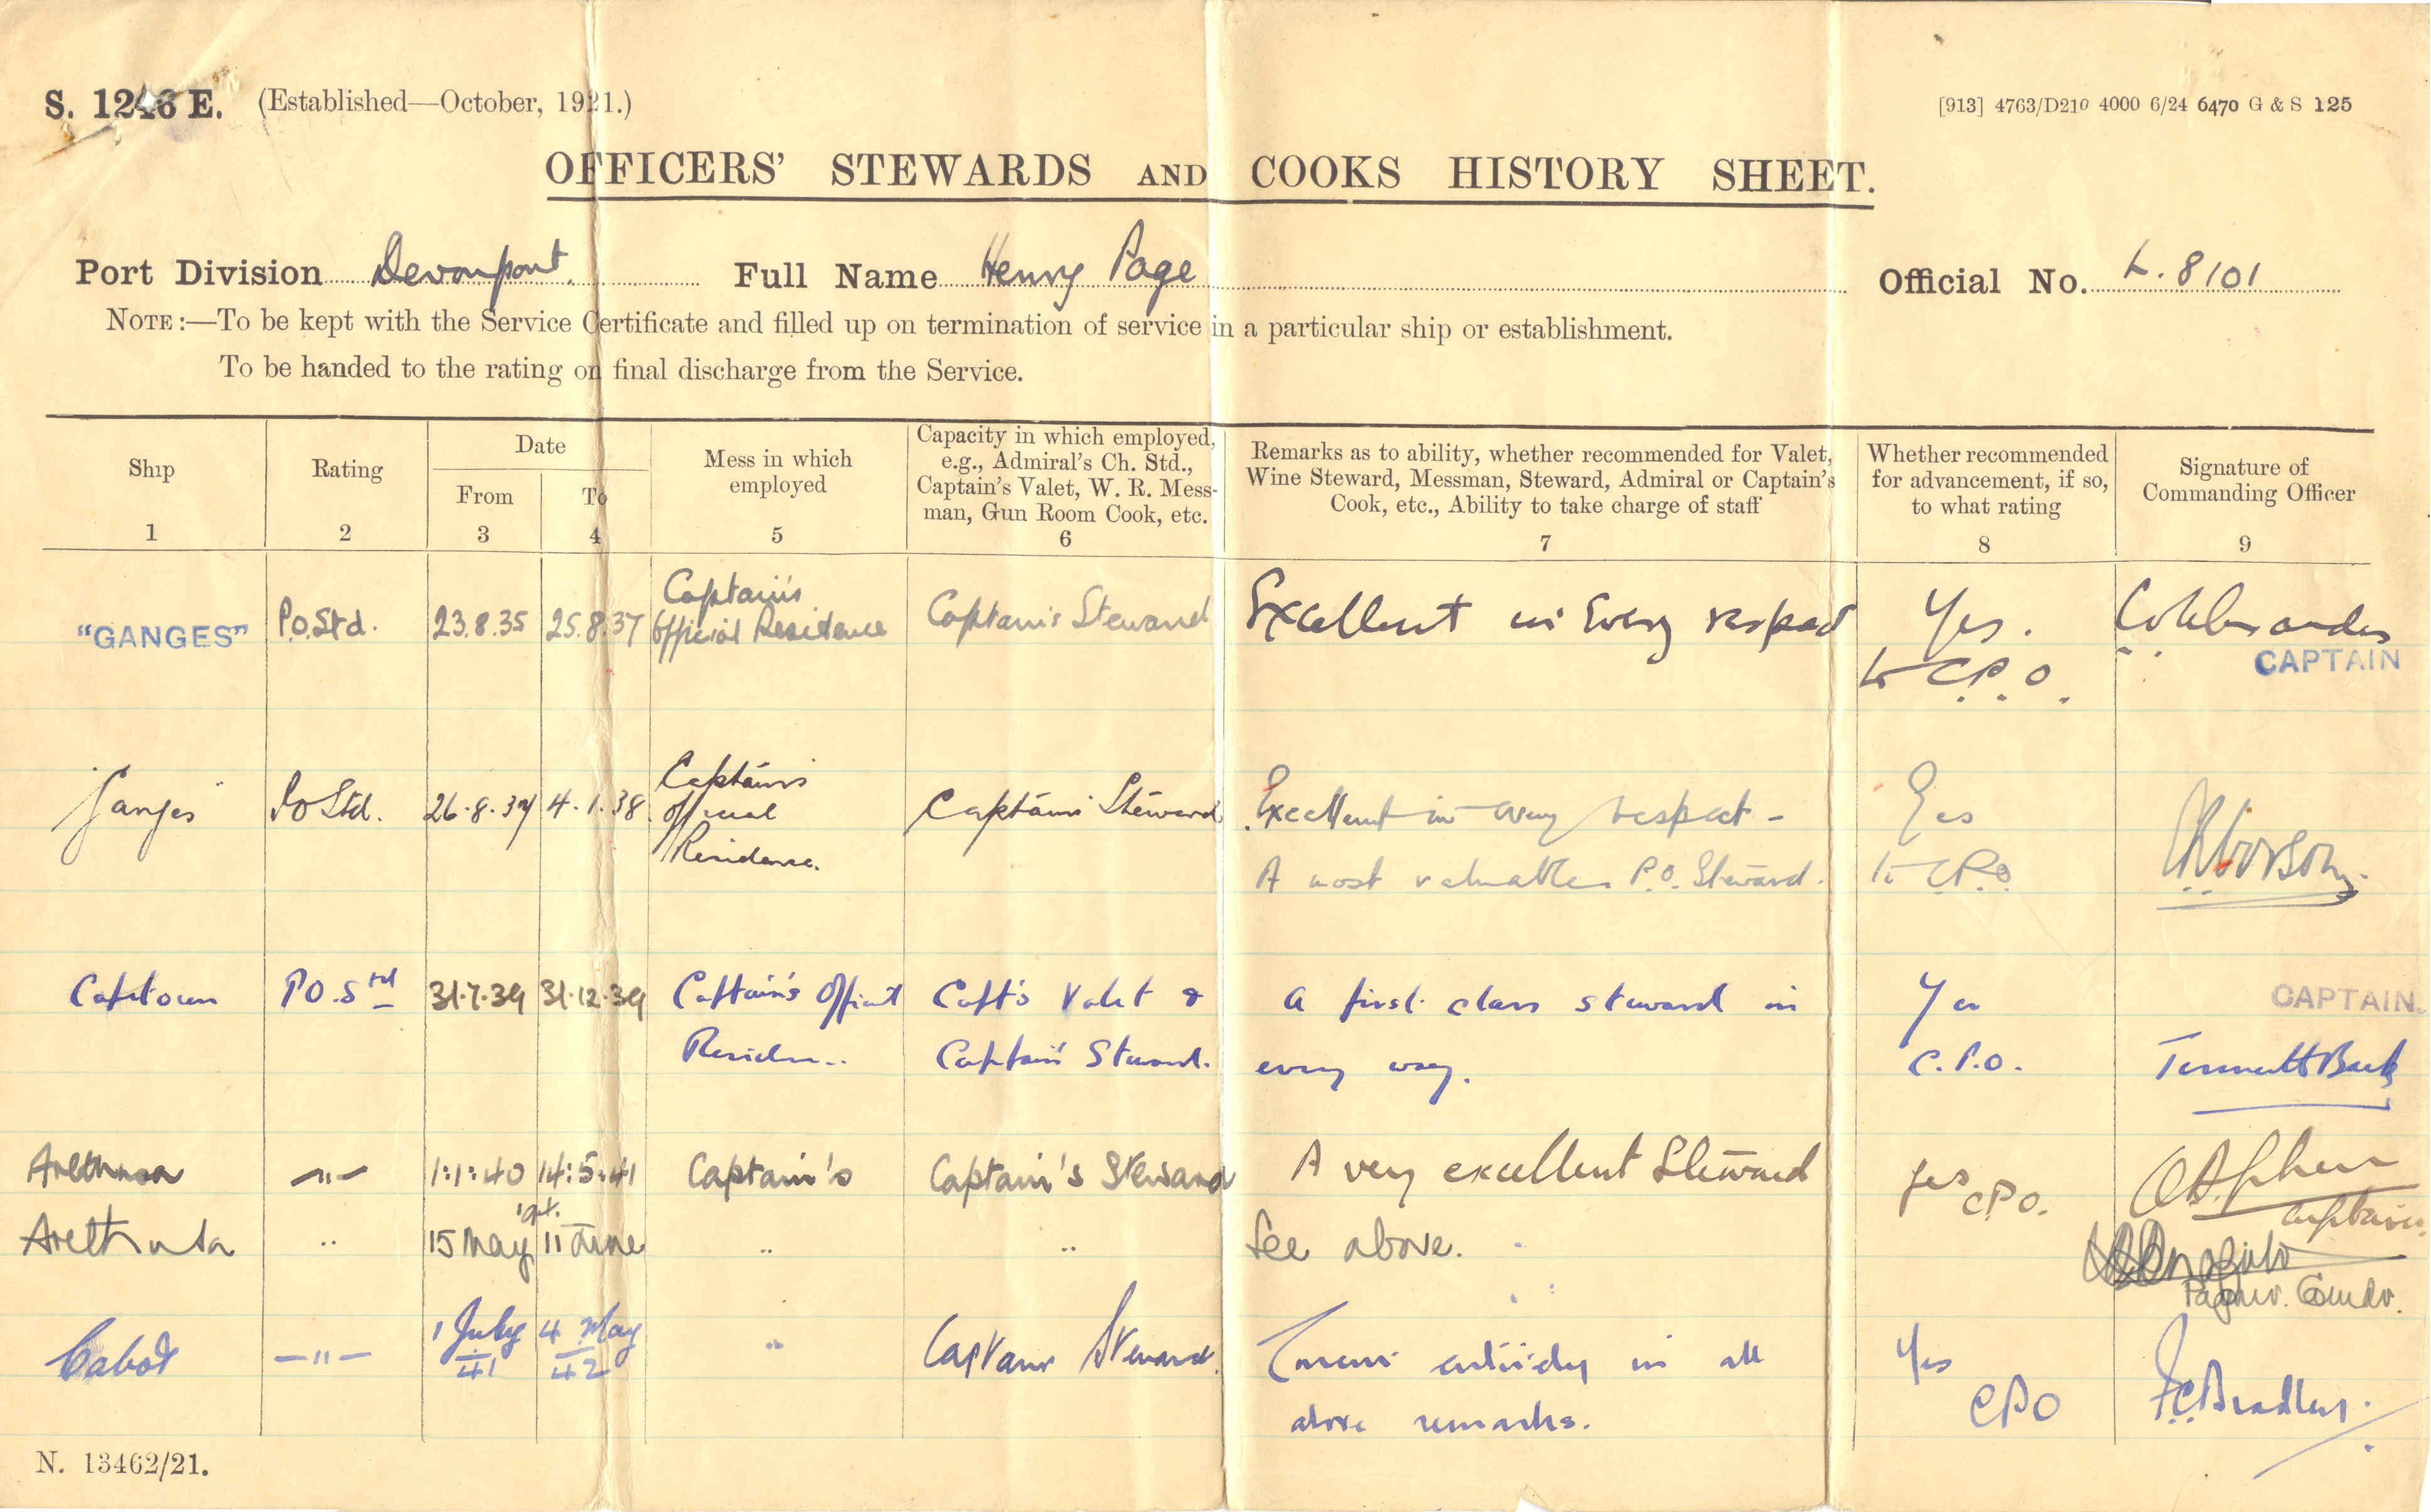 S. 1246 E. (Established—October, 1921.)
[913] 4763/D210 4000 6/24 6470 G & S 125
OFFICERS' STEWARDS AND COOKS HISTORY SHEET.
Port Division Devonport. Full Name Henry Page Official No. L. 8101
NOTE:—To be kept with the Service Certificate and filled up on termination of service in a particular ship or establishment.
To be handed to the rating on final discharge from the Service.
Ship
1
Rating
2
Date
From
3
To
4
Mess in which
employed
5
Capacity in which employed,
e.g., Admiral's Ch. Std.,
Captain's Valet, W. R. Mess-
man, Gun Room Cook, etc.
6
Remarks as to ability, whether recommended for Valet,
Wine Steward, Messman, Steward, Admiral or Captain's
Cook, etc., Ability to take charge of staff
7
Whether recommended
for advancement, if so,
to what rating
8
Signature of
Commanding Officer
9
"GANGES" P.O.Std. 23.8.35 25.8.37
Captain's
Official Residence
Captain's Steward
Excellent in Every respect
Yes.
to C.P.O.
CAPTAIN
"Ganges" PO Std. 26.8.37 4.1.38
Captain's
official
Residence.
Captain's Steward
Excellent in every respect -
A most valuable P.O. Steward.
Yes
to C.P.O.
Capetown PO.Std 31.7.39 31.12.39
Captain's Official
Residence
Capt's Valet &
Captain's Steward.
A first class steward in
every way.
Yes
C.P.O.
CAPTAIN.
Arethusa —"— 1:1:40 14:5:41 Captain's Captain's Steward A very excellent Steward Yes CPO.
Captain
Arethusa " 15 May 11 June " " See above.
Paymr. Comdr.
Cabot —"— 1 July 41 4 May 42 " Captains Steward.
Concur entirely in all
above remarks.
Yes
CPO
F.C. Bradley.
N. 13462/21.